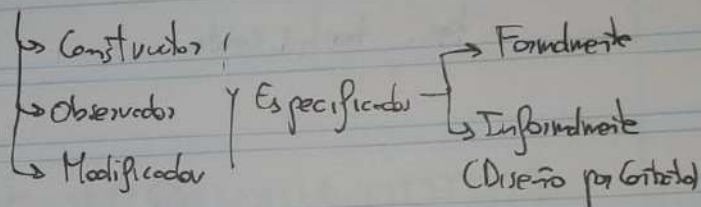 Constructor
Observador
Modificador
Especificados
Formalmente
Informalmente
(Diseño por Contrato)